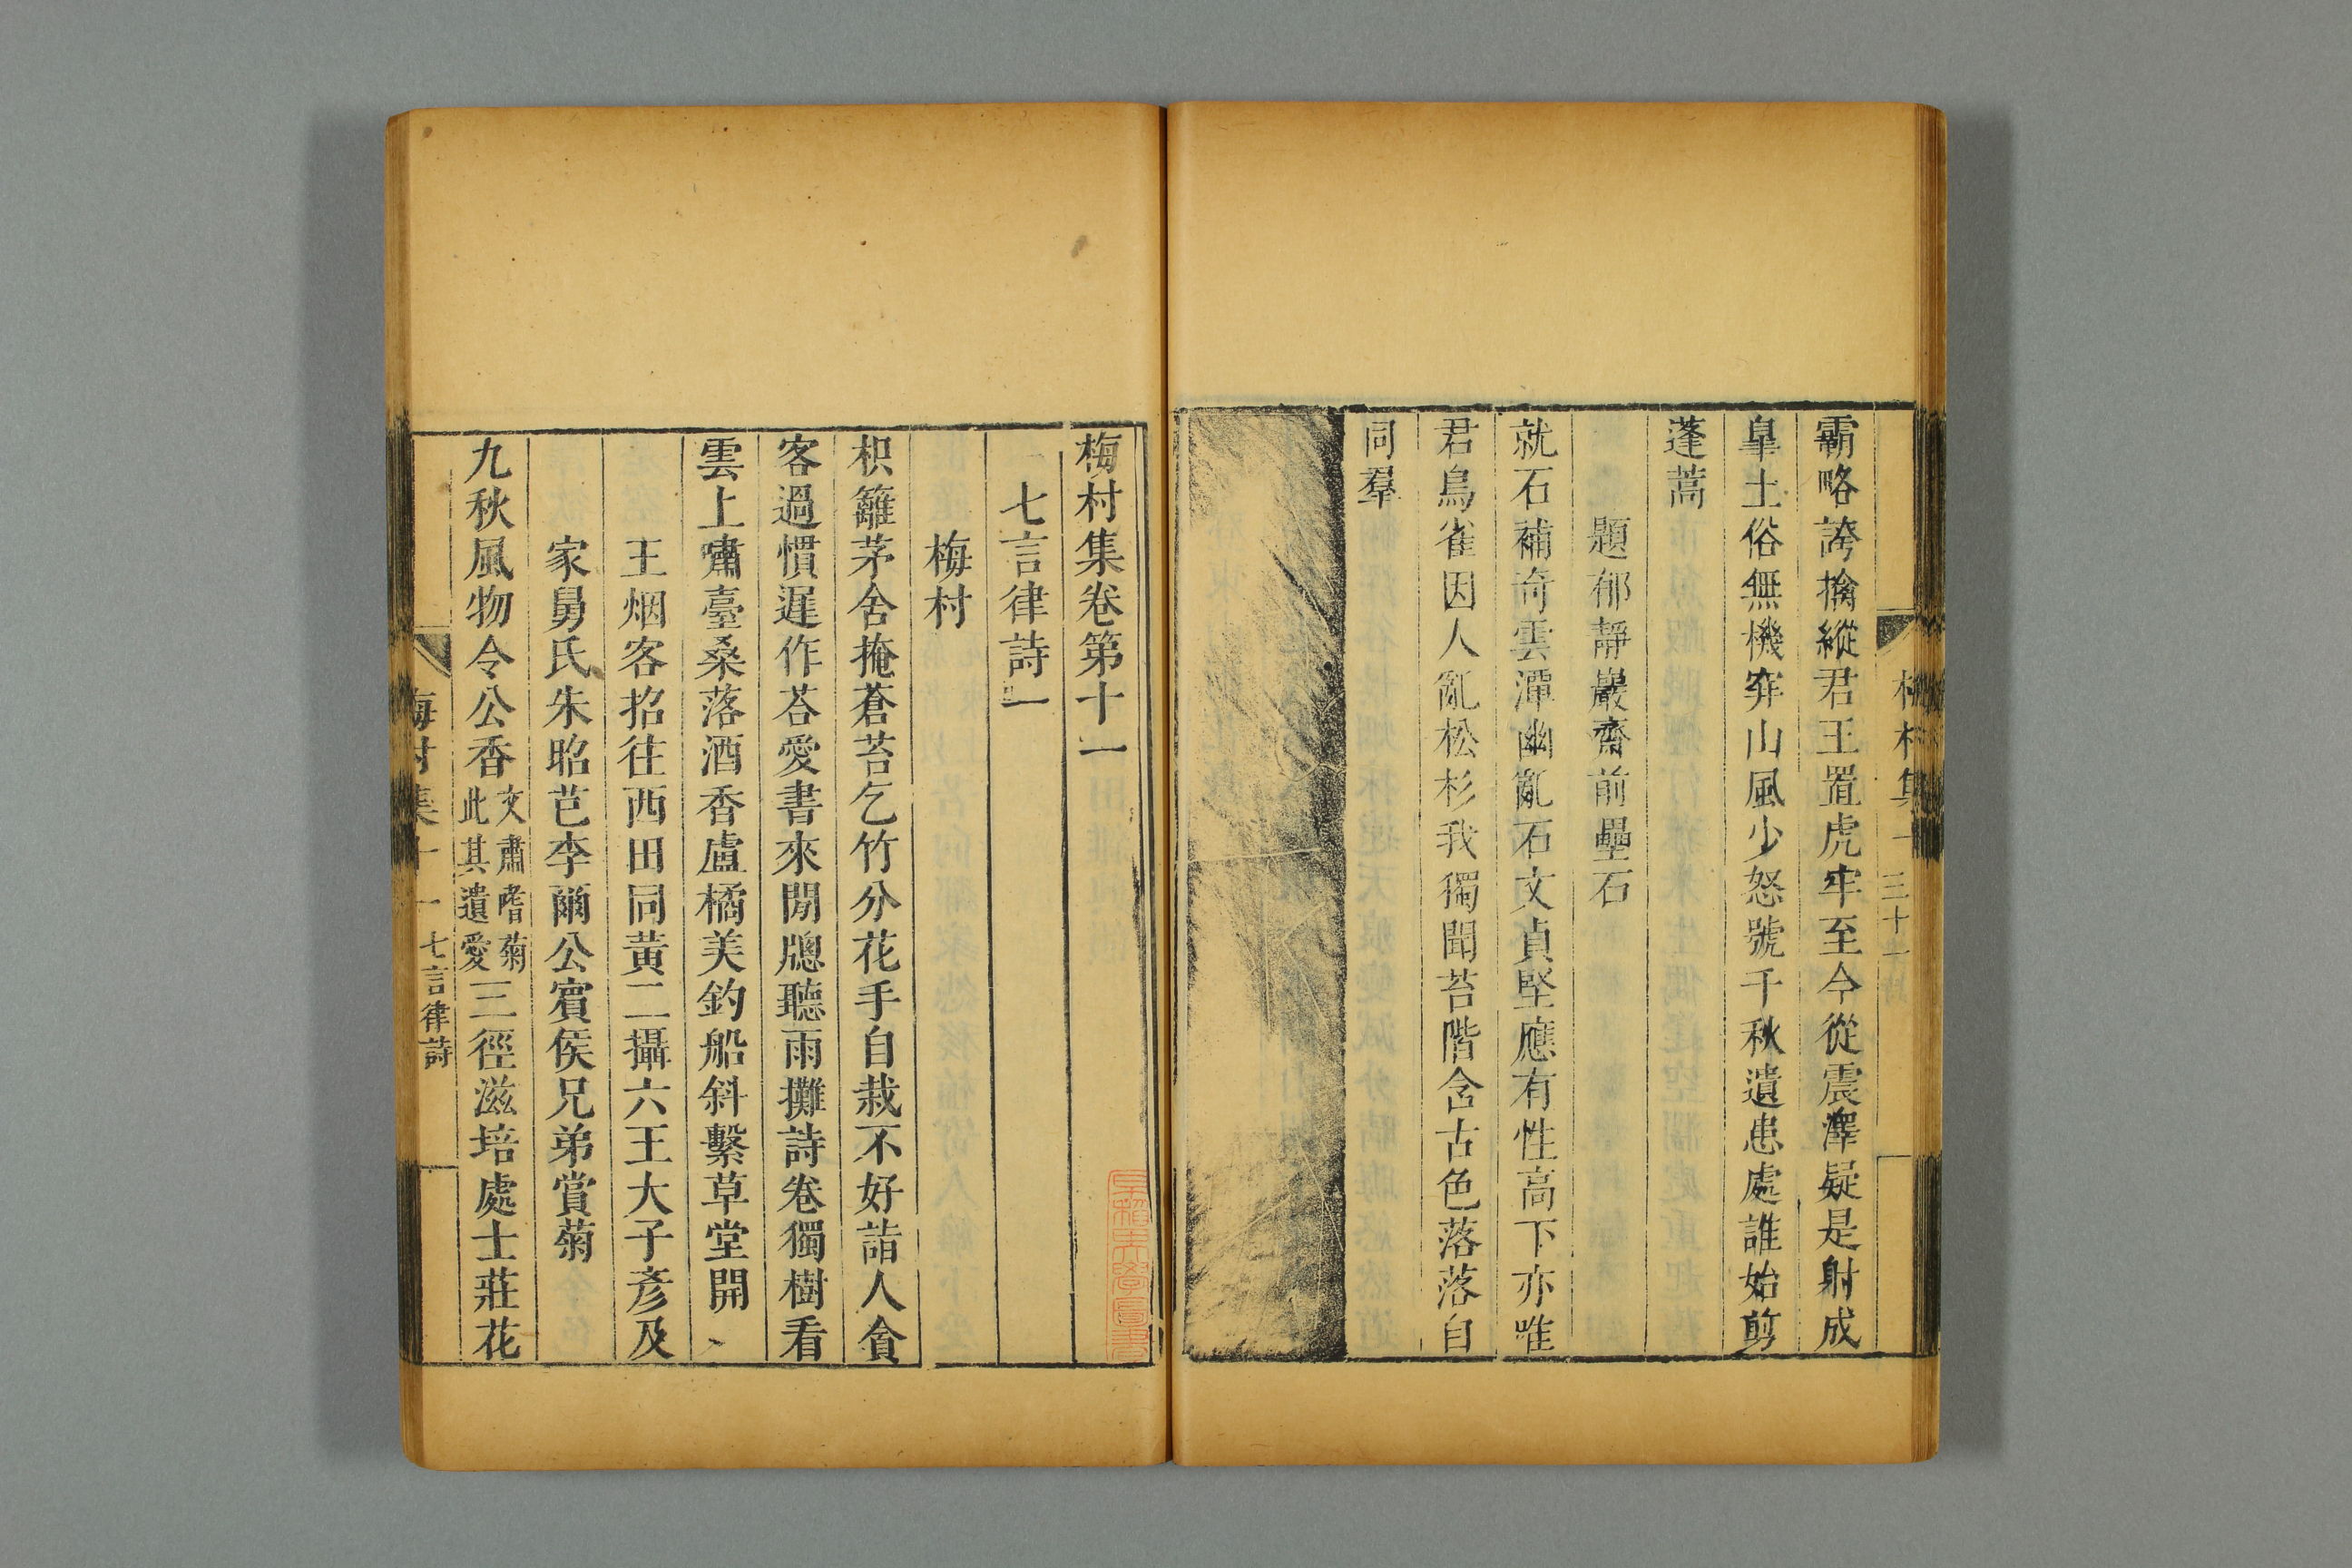 霸略誇擒縱君王罝虎牢至今從震澤疑是射成
皐土俗無機穽山風少怒號千秋遺患處誰始剪
蓬蒿
題郁靜巖齋前壘石
就石補奇雲潭幽亂石文貞堅應有性高下亦唯
君鳥雀因人亂松杉我獨聞苔階含古色落落自
同羣
梅村集卷第十一
七言律詩一
梅村
枳籬茅舍掩蒼苔乞竹分花手自栽不好詣人貪
客過慣遲作荅愛書來閒牕聽雨攤詩卷獨樹看
雲上嘯臺桑落酒香盧橘美釣船斜繫草堂開
王烟客招往西田同黃二攝六王大子彥及
家舅氏朱昭芑李爾公賓侯兄弟賞菊
九秋風物令公香文肅嗜菊此其遺愛三徑滋培處士莊花
梅村集十一 七言律詩